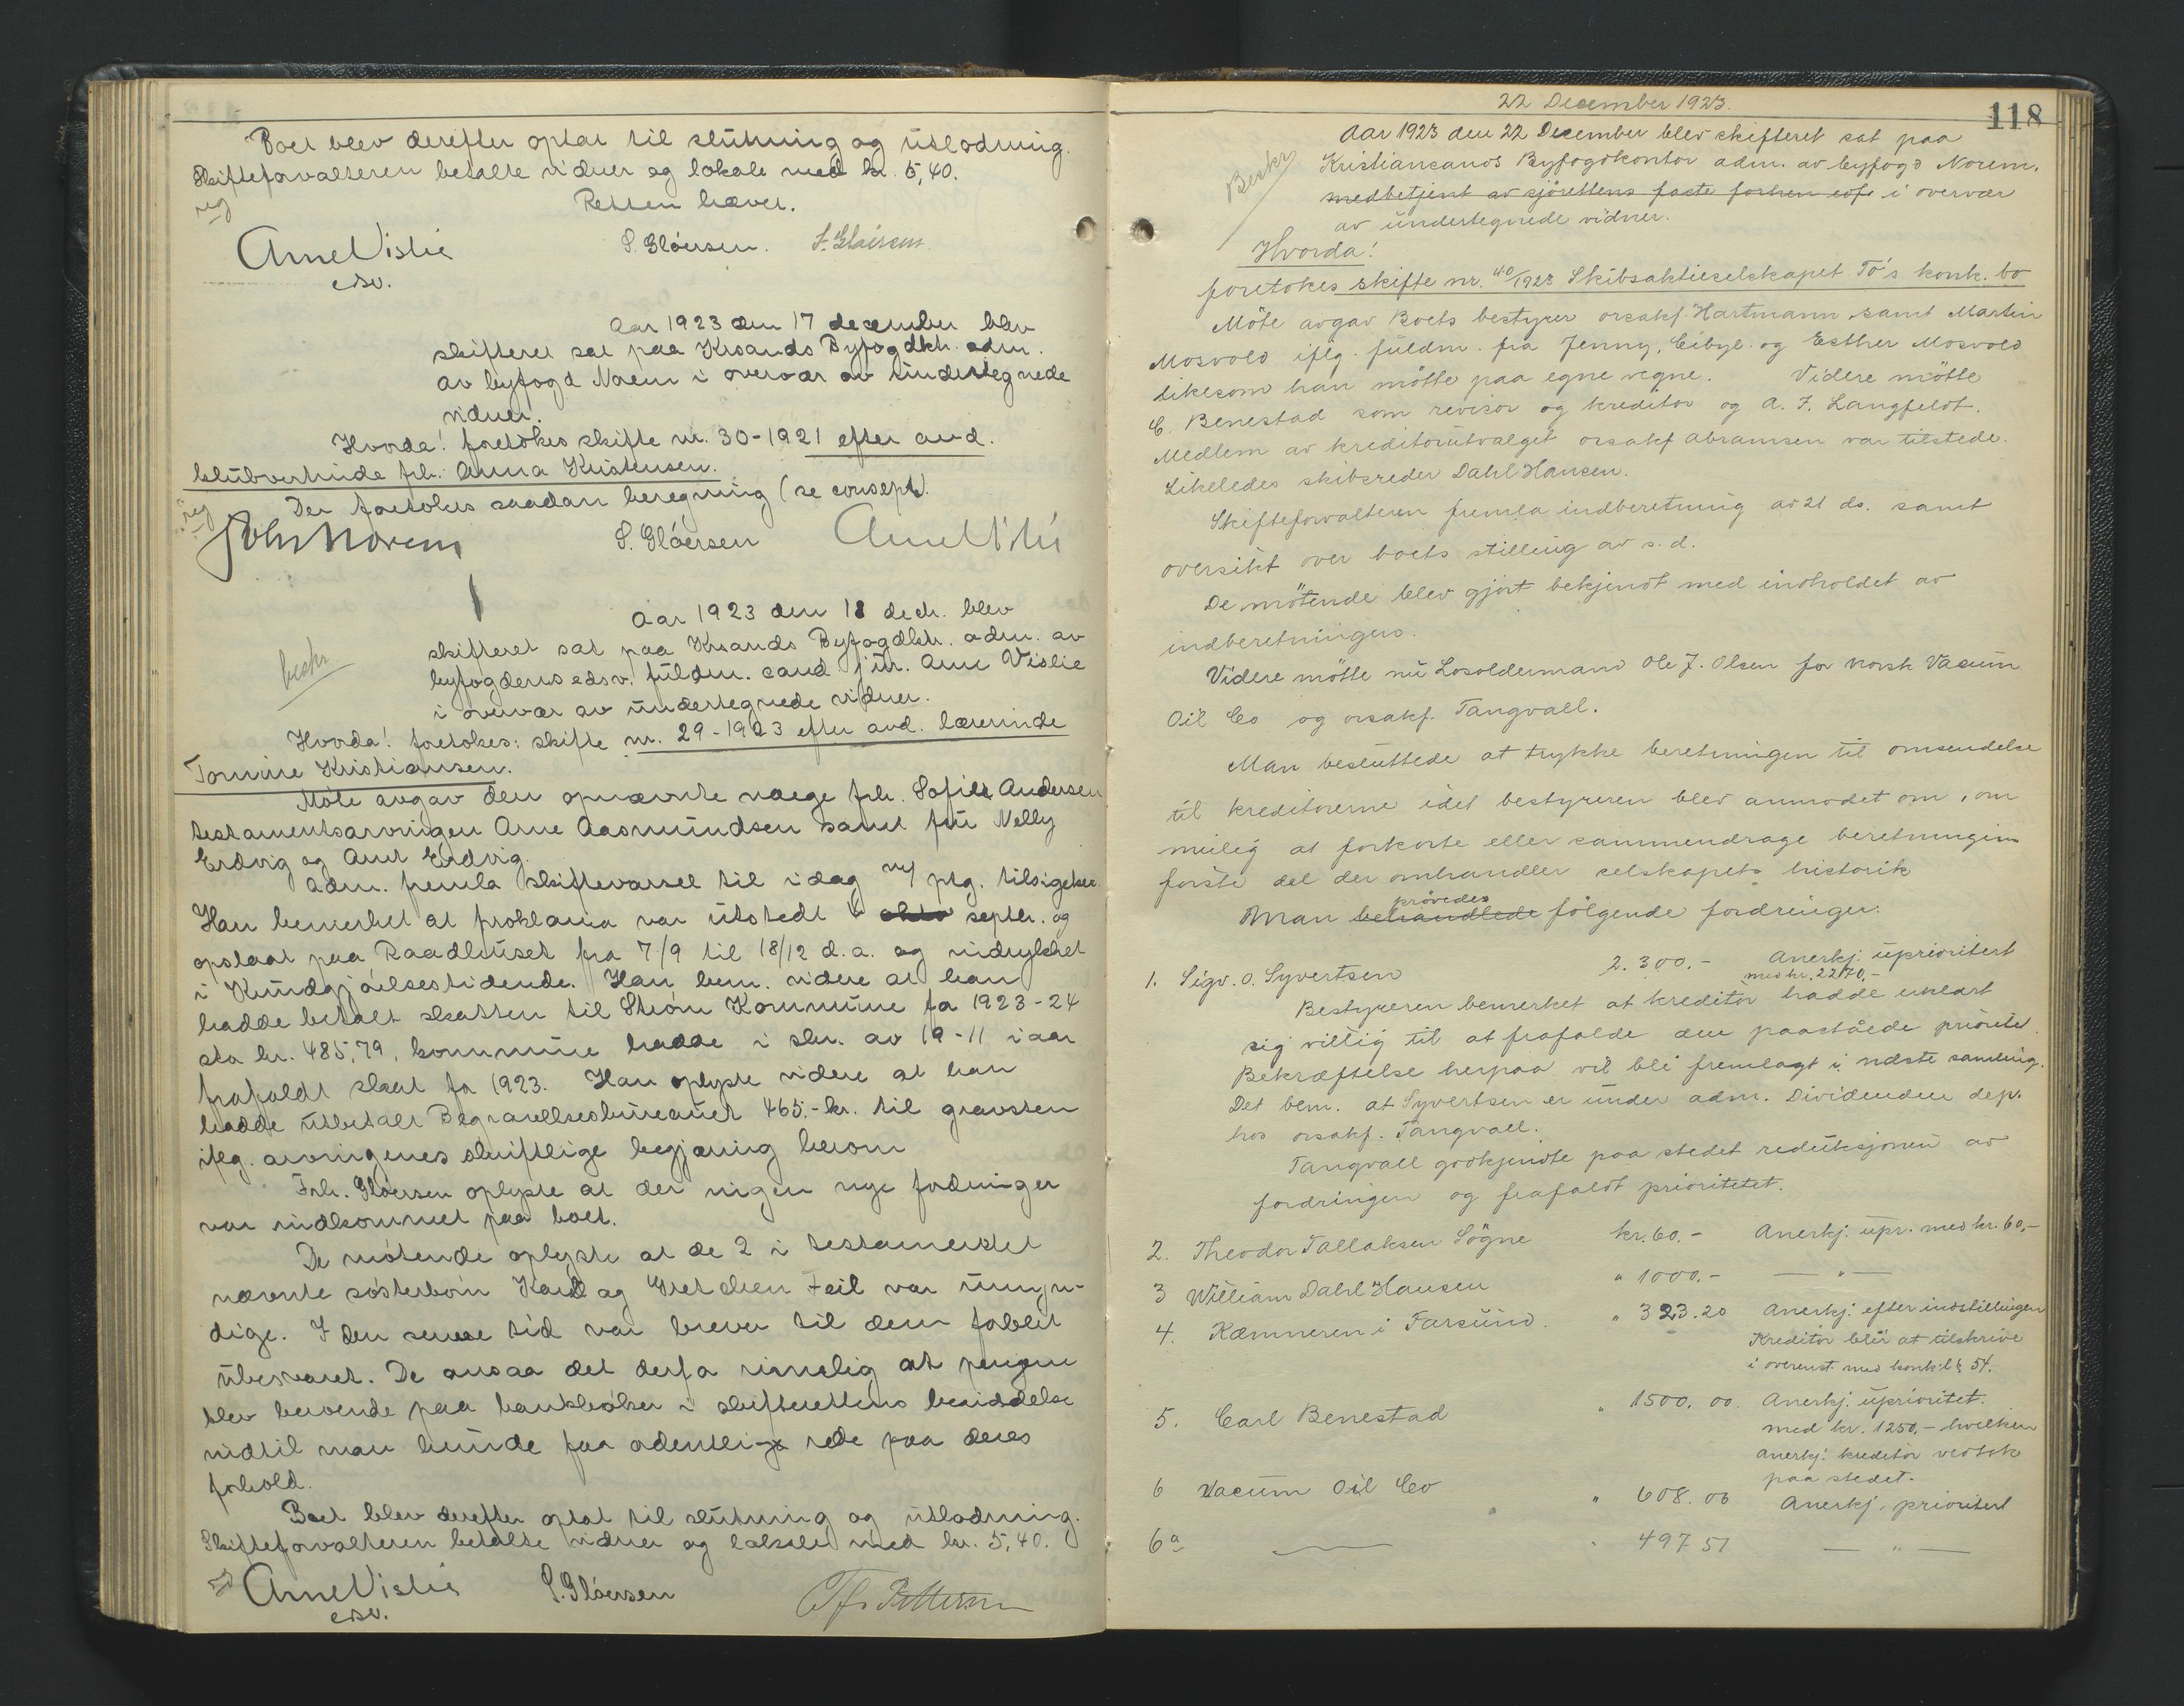 Boet blev derefter optat til slutning og utlodning.
Skifteforvalteren betalte vidner og lokale med kr. 5,40.
Retten hævet.
Arne Vislie
edsv.
S. Glóersen.
Aar 1923 den 17 december blev
skifteret sat paa Krsands Byfogdktr. adm.
av byfogd Norem i overvær av undertegnede
vidner.
Hvorda! foretokes skifte nr. 30-1921 efter avd.
klubvertinde frk. Anna Kristensen.
Der foretokes saadan beregning (se consept).
John Norem
S. Glóersen
Arne Vislie
Aar 1923 den 18 decb. blev
beskr
skifteret sat paa Krsands Byfogdktr. adm. av
byfogdens edsv. fuldm. cand jur. Arne Vislie
i overvær av undertegnede vidner.
Hvorda! foretokes: skifte nr. 29-1923 efter avd. lærerinde
Tomine Kristiansen.
Møte avgav den opnævnte væge frk. Sofie Andersen
testamentsarvingen Arne Aasmundsen samt fru Nelly
Erdvig og Arnt Erdvig.
Adm. fremla skiftevarsel til idag m/ ptg. tilsigelser.
Han bemerket at proklama var utstedt septbr. og
opslaat paa Raadhuset fra 7/9 til 18/12 d.a. og indrykket
i Kundgjörelsestidende. Han bem. videre at han
hadde betalt skatten til Kommune for 1923-24
sto kr. 485,79, kommune hadde i skr. av 19-11 iaar
frafaldt skat for 1923. Han oplyste videre at han
hadde utbetalt Begravelsesbureauet 465.- kr. til gravsten
iflg. arvingenes skriftlige begjæring herom
Frk. Glóersen oplyste at der ingen nye fordringer
var indkommet paa boet.
De mötende oplyste at de 2 i testamentet
nævnte sösterbörn Karl og Gretchen Feil var umyn-
dige. I den senere tid var brever til dem forblit
ubesvaret. De ansaa det derfor rimelig at pengene
blev beroende paa bankböker i skifterettens besiddelse
indtil man kunde faa ordentlig rede paa deres
forhold.
Boet blev derefter optat til slutning og utlodning.
Skifteforvalteren betalte vidner og lokale med kr. 5,40.
Arne Vislie
edsv.
S. Glóersen
22 December 1923.
118
Aar 1923 den 22 December blev skifteret sat paa
Beskr
Kristiansands Byfogdkontor adm. av byfogd Norem.
medbetjent av sjörettens faste i overvær
av undertegnede vidner.
Hvorda!
foretokes skifte nr. 40/1923 Skibsaktieselskapet To's konk. bo
Möte avgav Boets bestyrer orsakf. Hartmann samt Martin
Mosvold iflg. fuldm. fra Jenny, Eibyl. og Esther Mosvold
likesom han mötte paa egne vegne. Videre mötte
C. Benestad som revisor og kreditor og A. F. Langfeldt.
Medlem av kreditorutvalget orsakf Abramsen var tilstede.
Likeledes skibsreder Dahl Hansen.
Skifteforvalteren fremla indberetning av 21 ds. samt
oversikt over boets stilling av s.d.
De mötende blev gjort bekjendt med indholdet av
indberetningen.
Videre mötte nu Losoldermand Ole J. Olsen for Norsk Vacum
Oil Co og orsakf. Tangvall.
Man besluttede at trykke beretningen til omsendelse
til kreditorerne idet bestyreren blev anmodet om, om
mulig at forkorte eller sammendrage beretningens
förste del der omhandler selskapets historik
prövedes
Man behandlede fölgende fordringer:
1. Sigv. O. Syvertsen 2.300.- Anerkj. uprioritert
med kr. 2270,-
Bestyreren bemerket at kreditor hadde erklært
sig villig til at frafalde den paaståede prioritet.
Bekræftelse herpaa vil bli fremlagt i næste samling.
Det bem. at Syvertsen er under adm. Dividenden dep.
hos orsakf. Tangvall.
Tangvall godkjendte paa stedet reduksjonen av
fordringen og frafaldt prioritetet.
2. Theodor Tallaksen Sögne kr. 60.- Anerkj. upr. med kr. 60,-
3 William Dahl Hansen " 1000.- — " —
4. Kæmneren i Farsund. " 323.20 Anerkj. efter indstillingen
Kreditor blir at tilskrive
i overenst. med konk.l § 54.
5. Carl Benestad " 1500.00. Anerkj. uprioritet.
med kr. 1250,- hvilken
anerkj. kreditor vedtok
paa stedet.
6 Vacum Oil Co " 608.06 Anerkj. prioritert
6a — " 497 51 — " —